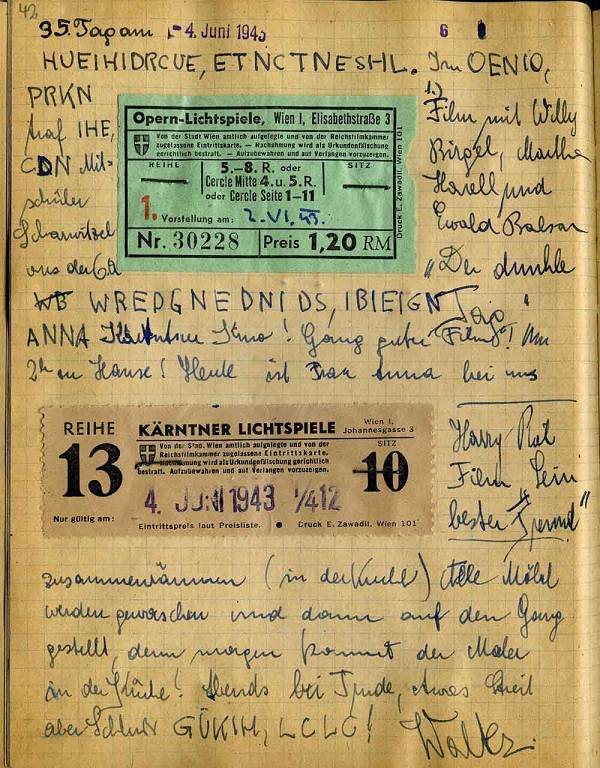 42
35. Tag am 4. Juni 1943
HUEIHIDRCUE, ETNCTNESHL. Im OENIO,
PRKN
traf IHE,
CDN Mit-
schüler
aus der 6.a
Opern-Lichtspiele, Wien I, Elisabethstraße 3
Von der Stadt Wien amtlich aufgelegte und von der Reichsfilmkammer
zugelassene Eintrittskarte. — Nachahmung wird als Urkundenfälschung
gerichtlich bestraft. — Aufzubewahren und auf Verlangen vorzuzeigen.
REIHE
5.-8. R. oder
Cercle Mitte 4. u. 5. R.
oder Cercle Seite 1-11
SITZ
1. Vorstellung am: 2. VI. 43.
Nr. 30228 Preis 1,20 RM
Druck E. Zawadil, Wien 101
1.)
Film mit Willy
Birgel, Martha
Harell und
Ewald Balser
"Der dunkle
Tag"
WREDGNEDNIDS, IBIEIGN
ANNA Kärntner Kino! Ganz guter Film! Um
2h zu Hause! Heute ist Frau Anna bei uns
REIHE
13
KÄRNTNER LICHTSPIELE
Wien I,
Johannesgasse 3
Von der Stadt Wien amtlich aufgelegte und von der
Reichsfilmkammer zugelassene Eintrittskarte.
Nachahmung wird als Urkundenfälschung gerichtlich
bestraft. Aufzubewahren und auf Verlangen vorzuzeigen.
SITZ
10
4. JUNI 1943 1/412
Nur gültig am: Eintrittspreis laut Preisliste. ● Druck E. Zawadil, Wien 101
Harry Piel
Film "Sein
bester Freund"
zusammenräumen (in der Küche) Alle Möbel
werden gewaschen und dann auf den Gang
gestellt, denn morgen kommt der Maler
in die Küche! Abends bei Trude, etwas Streit
aber Schluß GÜKIH, LCLC!
Walter.